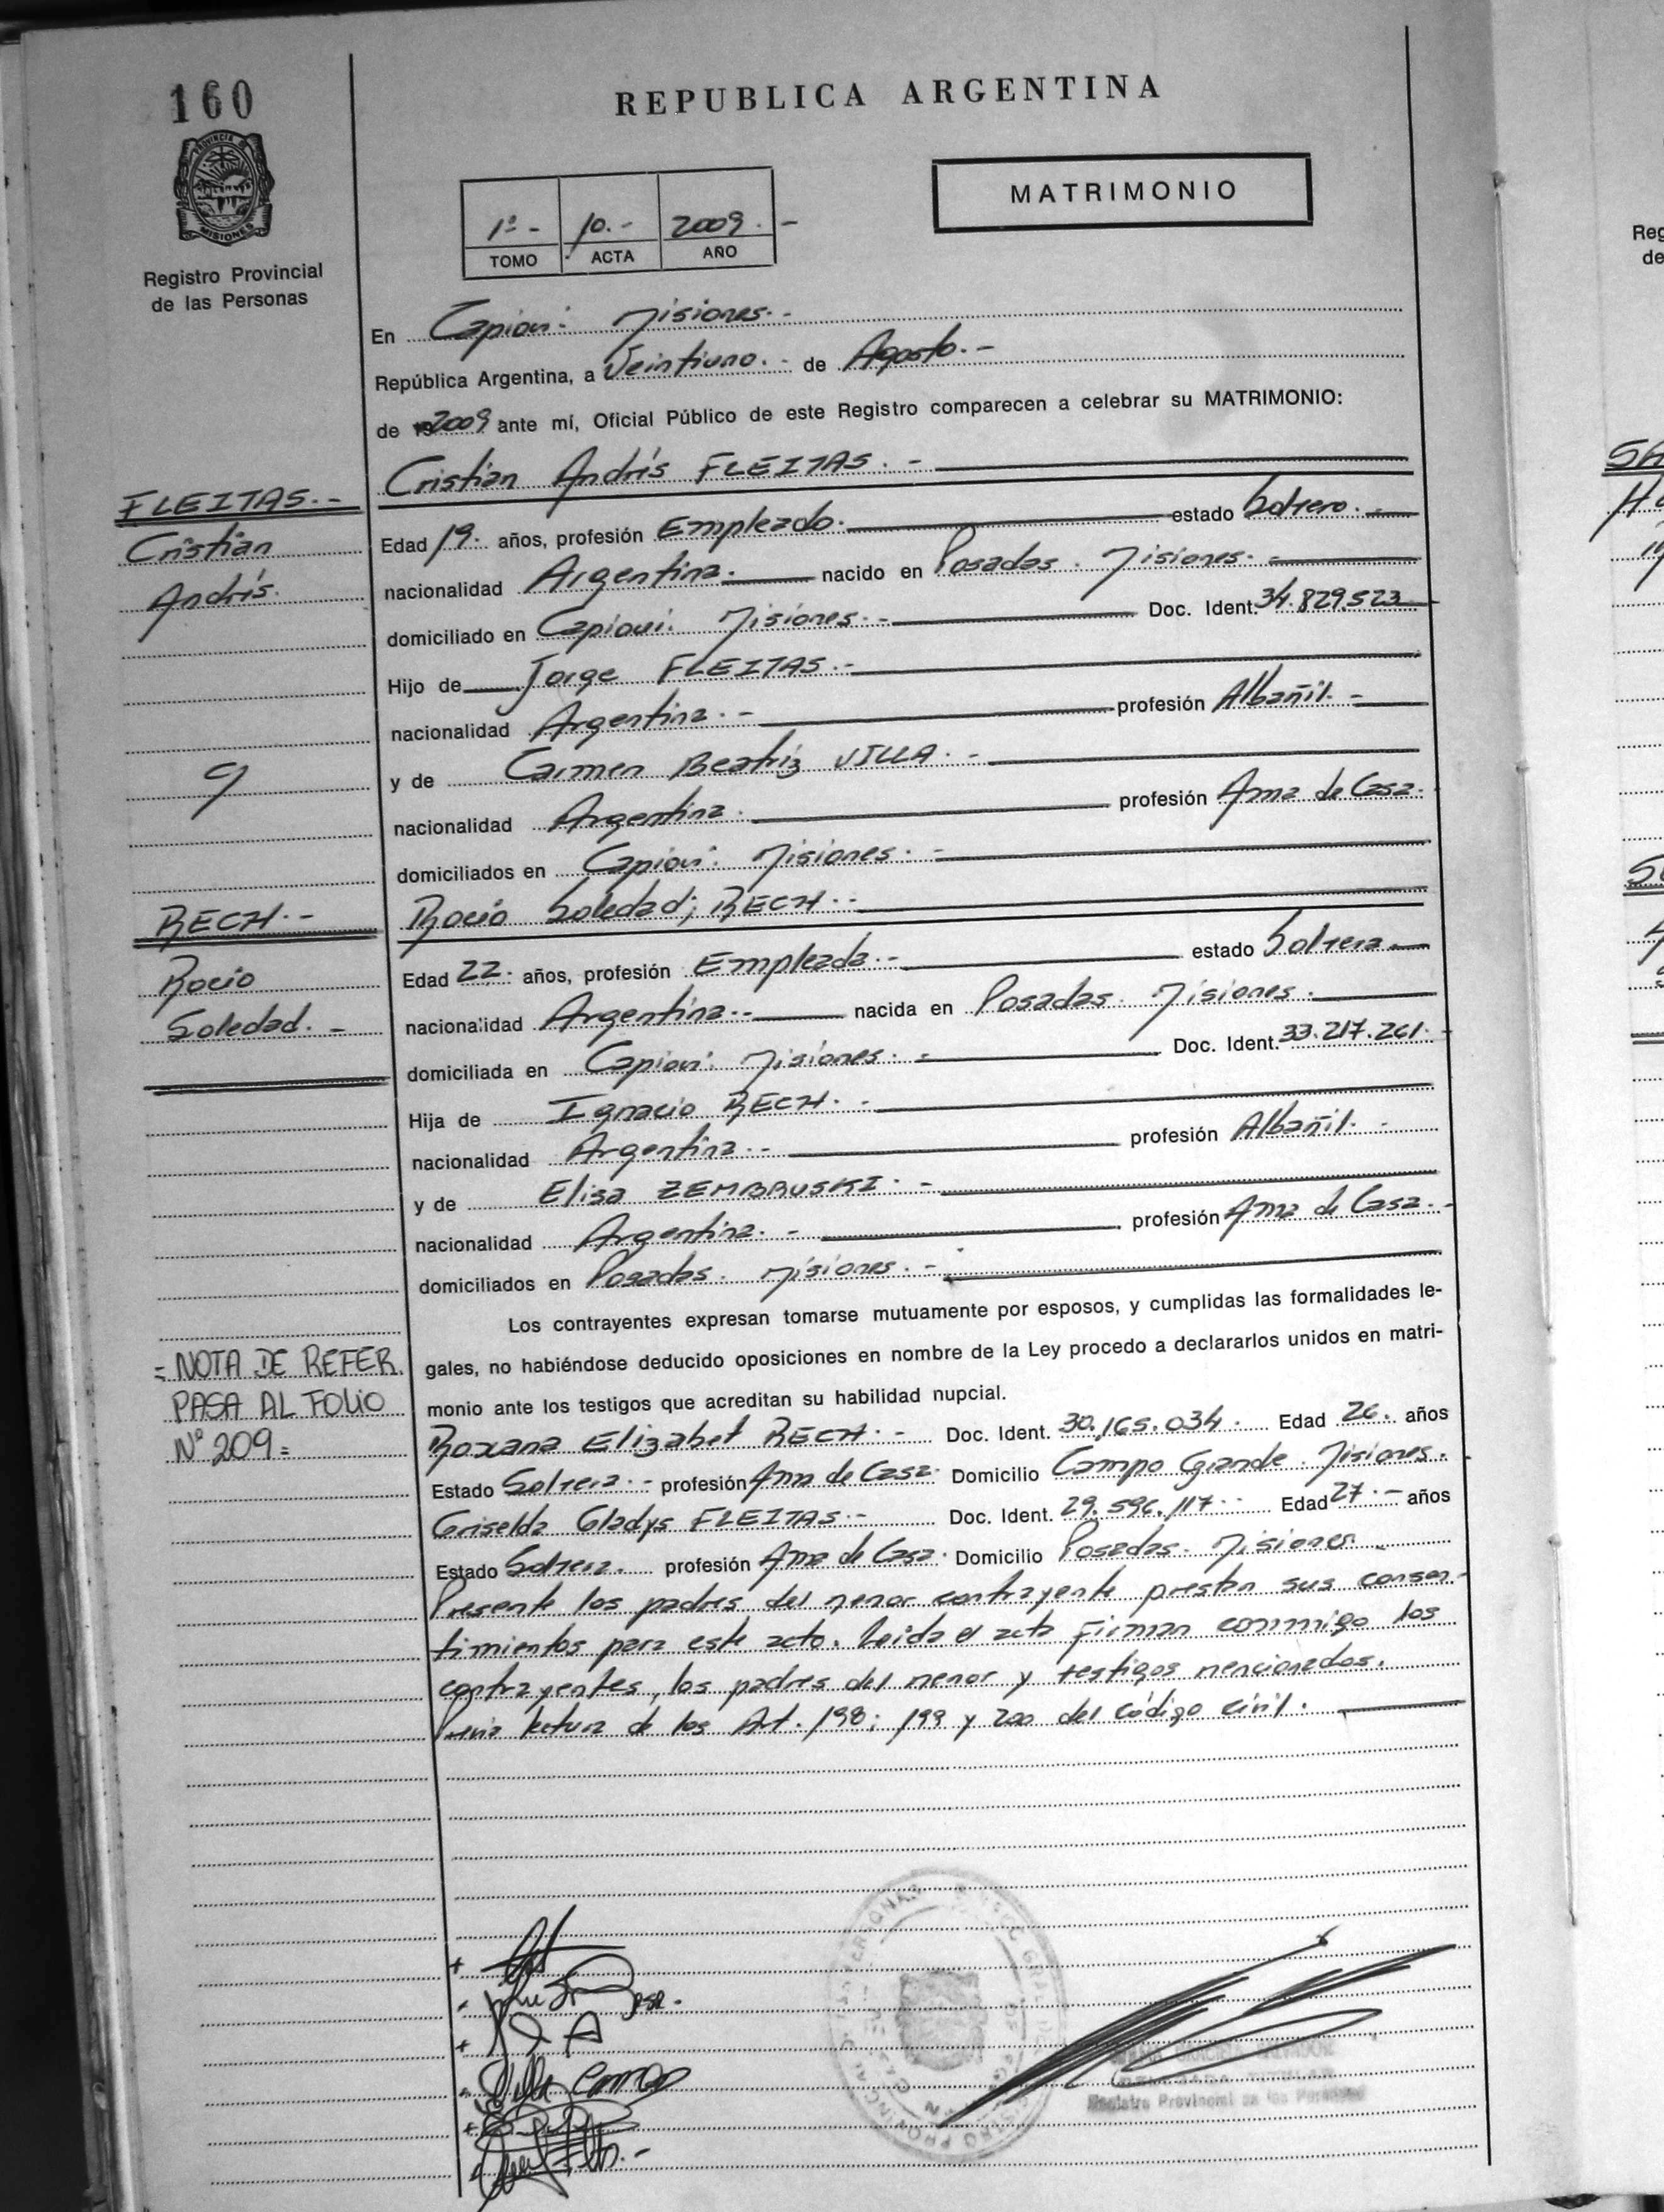 160
REPUBLICA ARGENTINA
PROVINCIA DE
MISIONES
Registro Provincial
de las Personas
MATRIMONIO
1º - 10.- 2009.-
TOMO ACTA AÑO
En Capioví. Misiones.-
República Argentina, a Veintiuno.- de Agosto.-
de 2009 ante mí, Oficial Público de este Registro comparecen a celebrar su MATRIMONIO:
Cristian Andrés FLEITAS.-
FLEITAS.-
Cristian
Andrés.
Edad 19. años, profesión Empleado. estado Soltero.-
nacionalidad Argentina. nacido en Posadas. Misiones.-
domiciliado en Capioví. Misiones.- Doc. Ident. 34.829.523
Hijo de Jorge FLEITAS.-
nacionalidad Argentina.- profesión Albañil.-
y
y de Carmen Beatriz VILLA.-
nacionalidad Argentina. profesión Ama de Casa.
domiciliados en Capioví. Misiones.-
RECH.-
Rocío
Soledad.-
Rocío Soledad; RECH.-
Edad 22. años, profesión Empleada.- estado Soltera.
nacionalidad Argentina.- nacida en Posadas. Misiones.
domiciliada en Capioví. Misiones.- Doc. Ident. 33.217.261.-
Hija de Ignacio RECH.-
nacionalidad Argentina.- profesión Albañil.-
y de Elisa ZEMBRUSKI.-
nacionalidad Argentina.- profesión Ama de Casa.-
domiciliados en Posadas. Misiones.-
Los contrayentes expresan tomarse mutuamente por esposos, y cumplidas las formalidades le-
gales, no habiéndose deducido oposiciones en nombre de la Ley procedo a declararlos unidos en matri-
monio ante los testigos que acreditan su habilidad nupcial.
= NOTA DE REFER.
PASA AL FOLIO
Nº 209=
Roxana Elizabet RECH.- Doc. Ident. 30.165.034. Edad 26. años
Estado Soltera.- profesión Ama de Casa. Domicilio Campo Grande. Misiones.
Griselda Gladys FLEITAS.- Doc. Ident. 29.596.117.- Edad 27.- años
Estado Soltera. profesión Ama de Casa. Domicilio Posadas. Misiones.
Presente los padres del menor contrayente prestan sus consen-
timientos para este acto. Leida el acta firman conmigo los
contrayentes, los padres del menor y testigos mencionados.
Previa lectura de los Art. 198; 199 y 200 del código civil.
Registro Provincial de las Personas